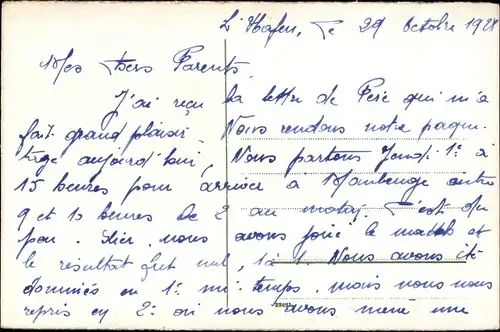 L'Hafen, Le 29 Octobre 1928
Mes chers Parents
J'ai reçu la lettre de Père qui m'a
fait grand plaisir. Nous rendons notre paque-
tage aujourd'hui, Nous partons Jeudi 1e à
15 heures pour arriver à Maubeuge entre
9 et 10 heures de 2 au matin, c'est du
pou. Hier, nous avons joué le match et
le résultat fut nul, 1 à 1. Nous avons été
dominés en 1e mi-temps, mais nous nous
repris en 2e où nous avons mené une